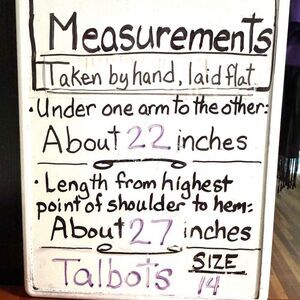 Measurements
Taken by hand, laid flat
• Under one arm to the other:
About 22 inches
• Length from highest
point of shoulder to hem:
About 27 inches
Talbots SIZE
14